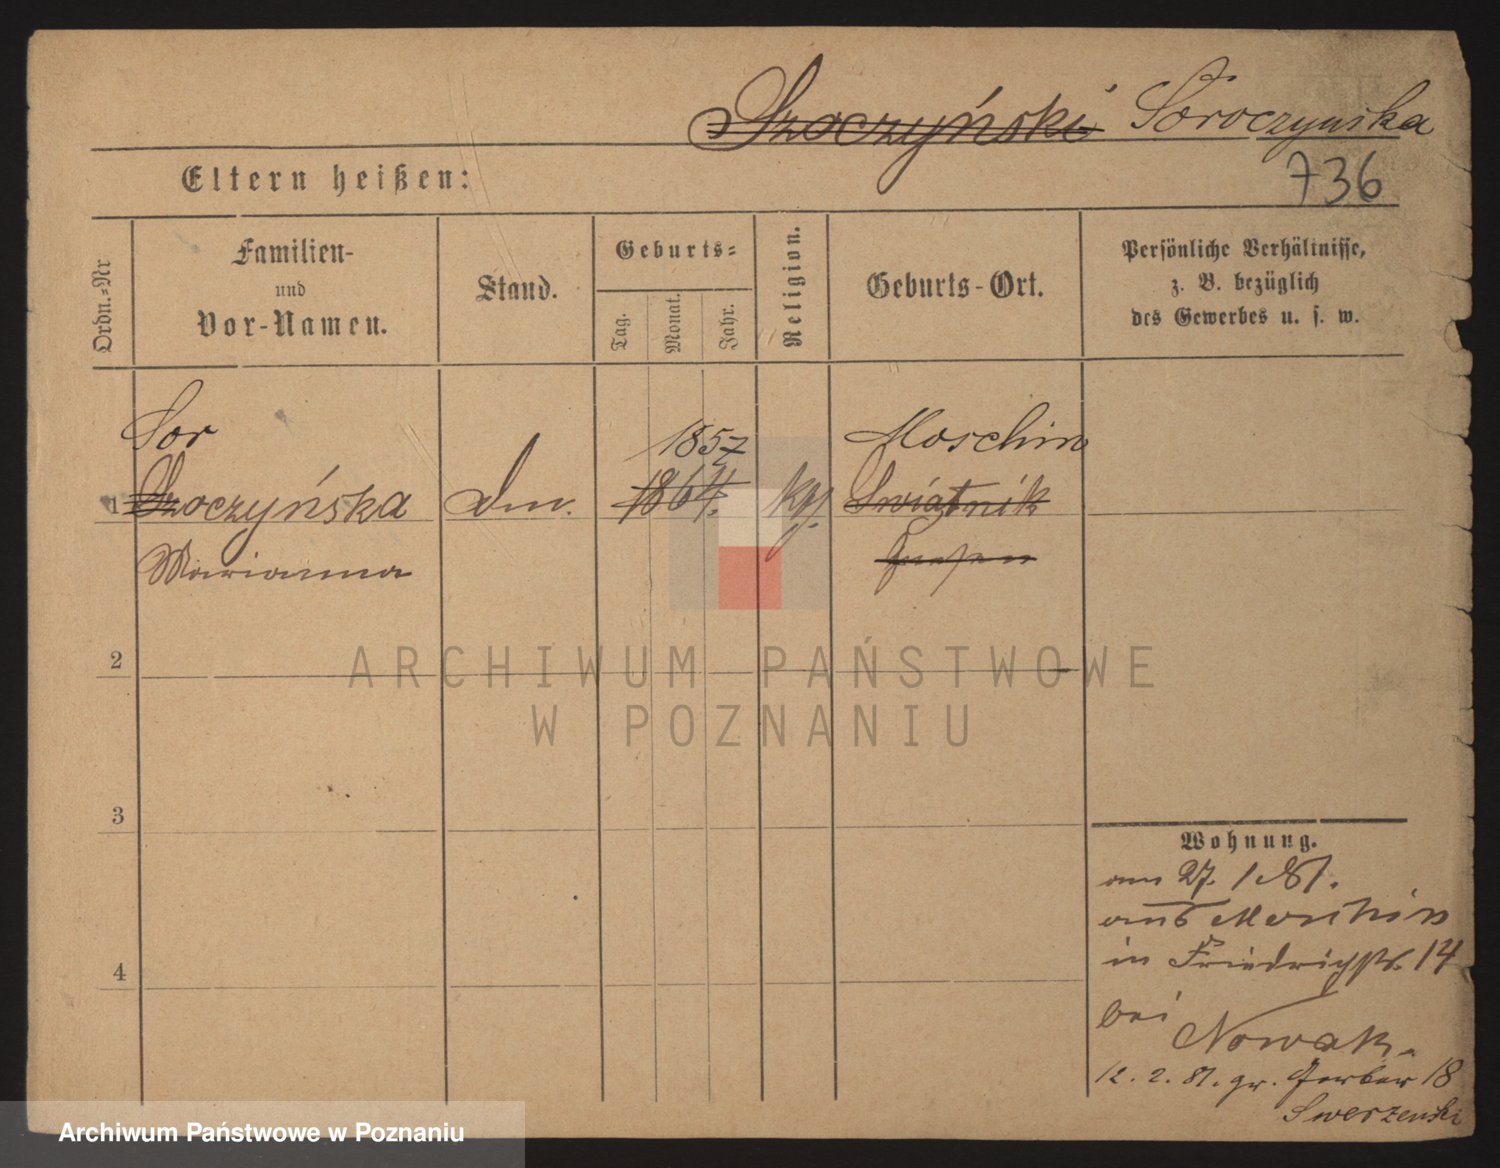 Szoczyński Soroczynska
Eltern heißen: 736
Ordn.=Nr
Familien-
und
Vor-Namen.
Stand.
Geburts=
Tag.
Monat.
Jahr.
Religion.
Geburts-Ort.
Persönliche Verhältnisse,
z. B. bezüglich
des Gewerbes u. s. w.
Sor 1857 Moschin
1 Szoczyńska 1864. Swiątnik
Marianna
2
ARCHIWUM PAŃSTWOWE
W POZNANIU
3
Wohnung.
am 27. 1. 81.
aus Moschin
in Friedrichstr. 14
4
bei
Nowak.
12. 2. 81. gr. Gerber 18
Swerzenski
Archiwum Państwowe w Poznaniu